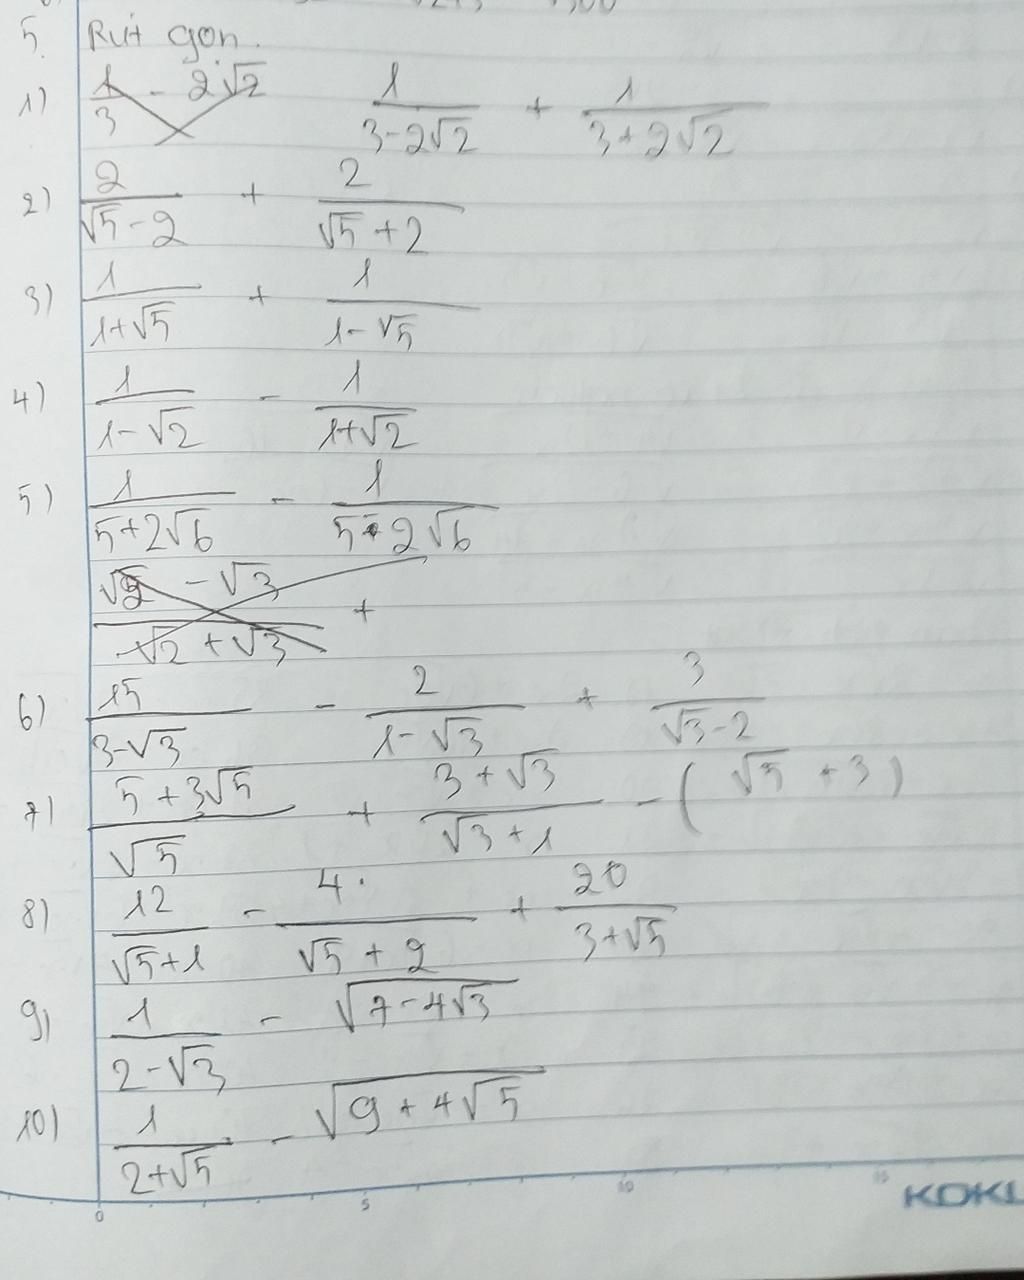 5. Rút gọn.
1) 1/(3-2√2) + 1/(3+2√2)
2) 2/(√5-2) + 2/(√5+2)
3) 1/(1+√5) + 1/(1-√5)
4) 1/(1-√2) - 1/(1+√2)
5) 1/(5+2√6) - 1/(5-2√6)
6) 15/(3-√3) - 2/(1-√3) + 3/(√3-2)
7) (5+3√5)/√5 + (3+√3)/(√3+1) - (√5+3)
8) 12/(√5+1) - 4/(√5+2) + 20/(3+√5)
9) 1/(2-√3) - √(7-4√3)
10) 1/(2+√5) - √(9+4√5)
0 5 10 15